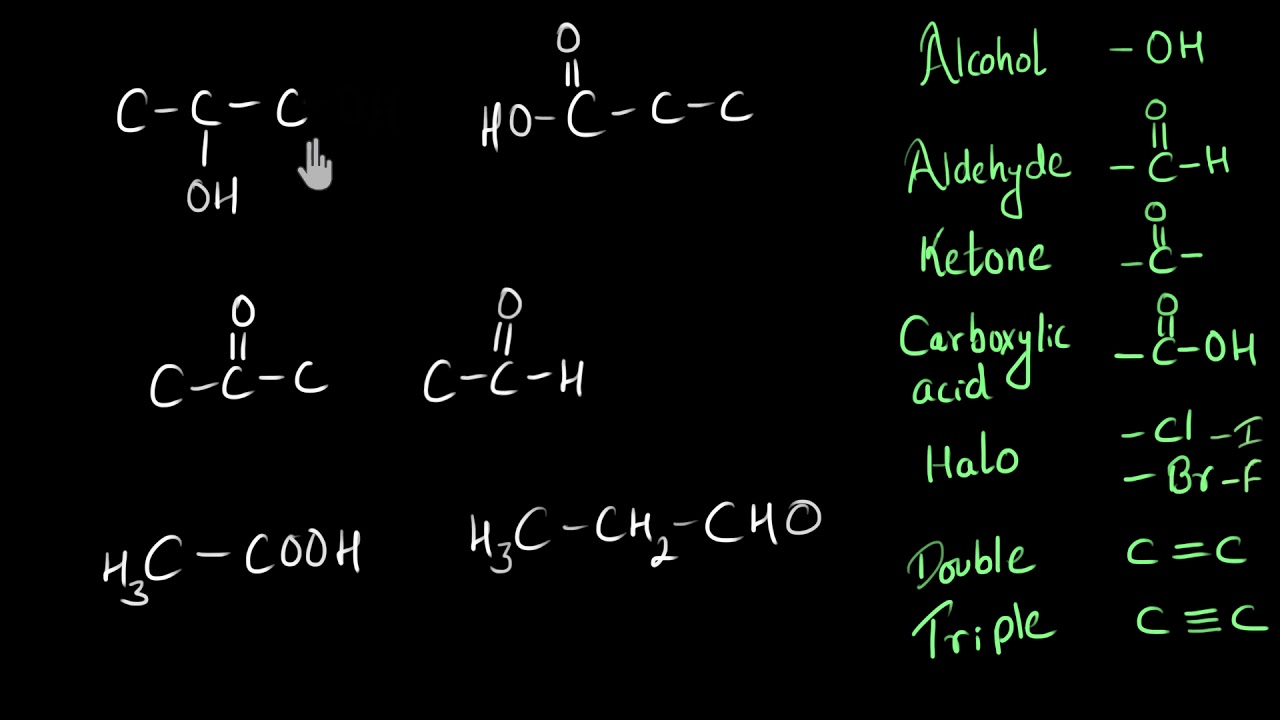 O
||
C – C – C HO – C – C – C
|
OH
O O
|| ||
C – C – C C – C – H
H₃C – COOH H₃C – CH₂ – CHO
Alcohol – OH
O
||
Aldehyde – C – H
O
||
Ketone – C –
O
||
Carboxylic – C – OH
acid
Halo – Cl – I
– Br – F
Double C = C
Triple C ≡ C